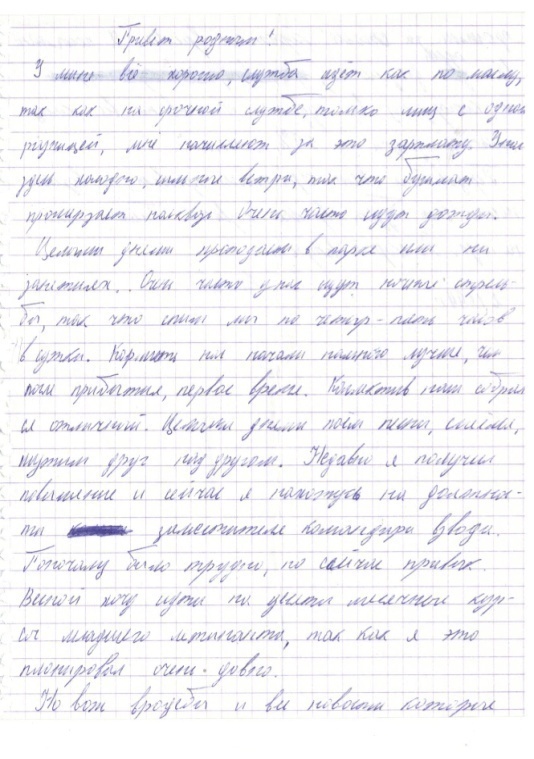 Привет родным!
У меня всё хорошо, служба идет как по маслу,
так как на срочной службе, только лиш с одной
разницей, мне начисляют за это зарплату.
здесь холодно, сильные ветра, так что бушлат
промерзает насквозь. Очень часто идут дожди.
Целыми днями пропадаем в парке или на
занятиях. Очень часто у нас идут ночные стрель-
бы, так что спим мы по четыре-пять часов
в сутки. Кормить нас начали намного лучше, чем
после прибытия, первое время. Коллектив наш собрал
ся отличный. Целыми днями поём песни, смеёмся,
шутим друг над другом. Недавно я получил
повышение и сейчас я нахожусь на должнос-
ти заместителя командира взвода.
Поначалу было трудно, но сейчас привык.
Весной хочу идти на десяти месячные кур-
сы младшего лейтенанта, так как я это
планировал очень давно.
Ну вот вродебы и все новости которые